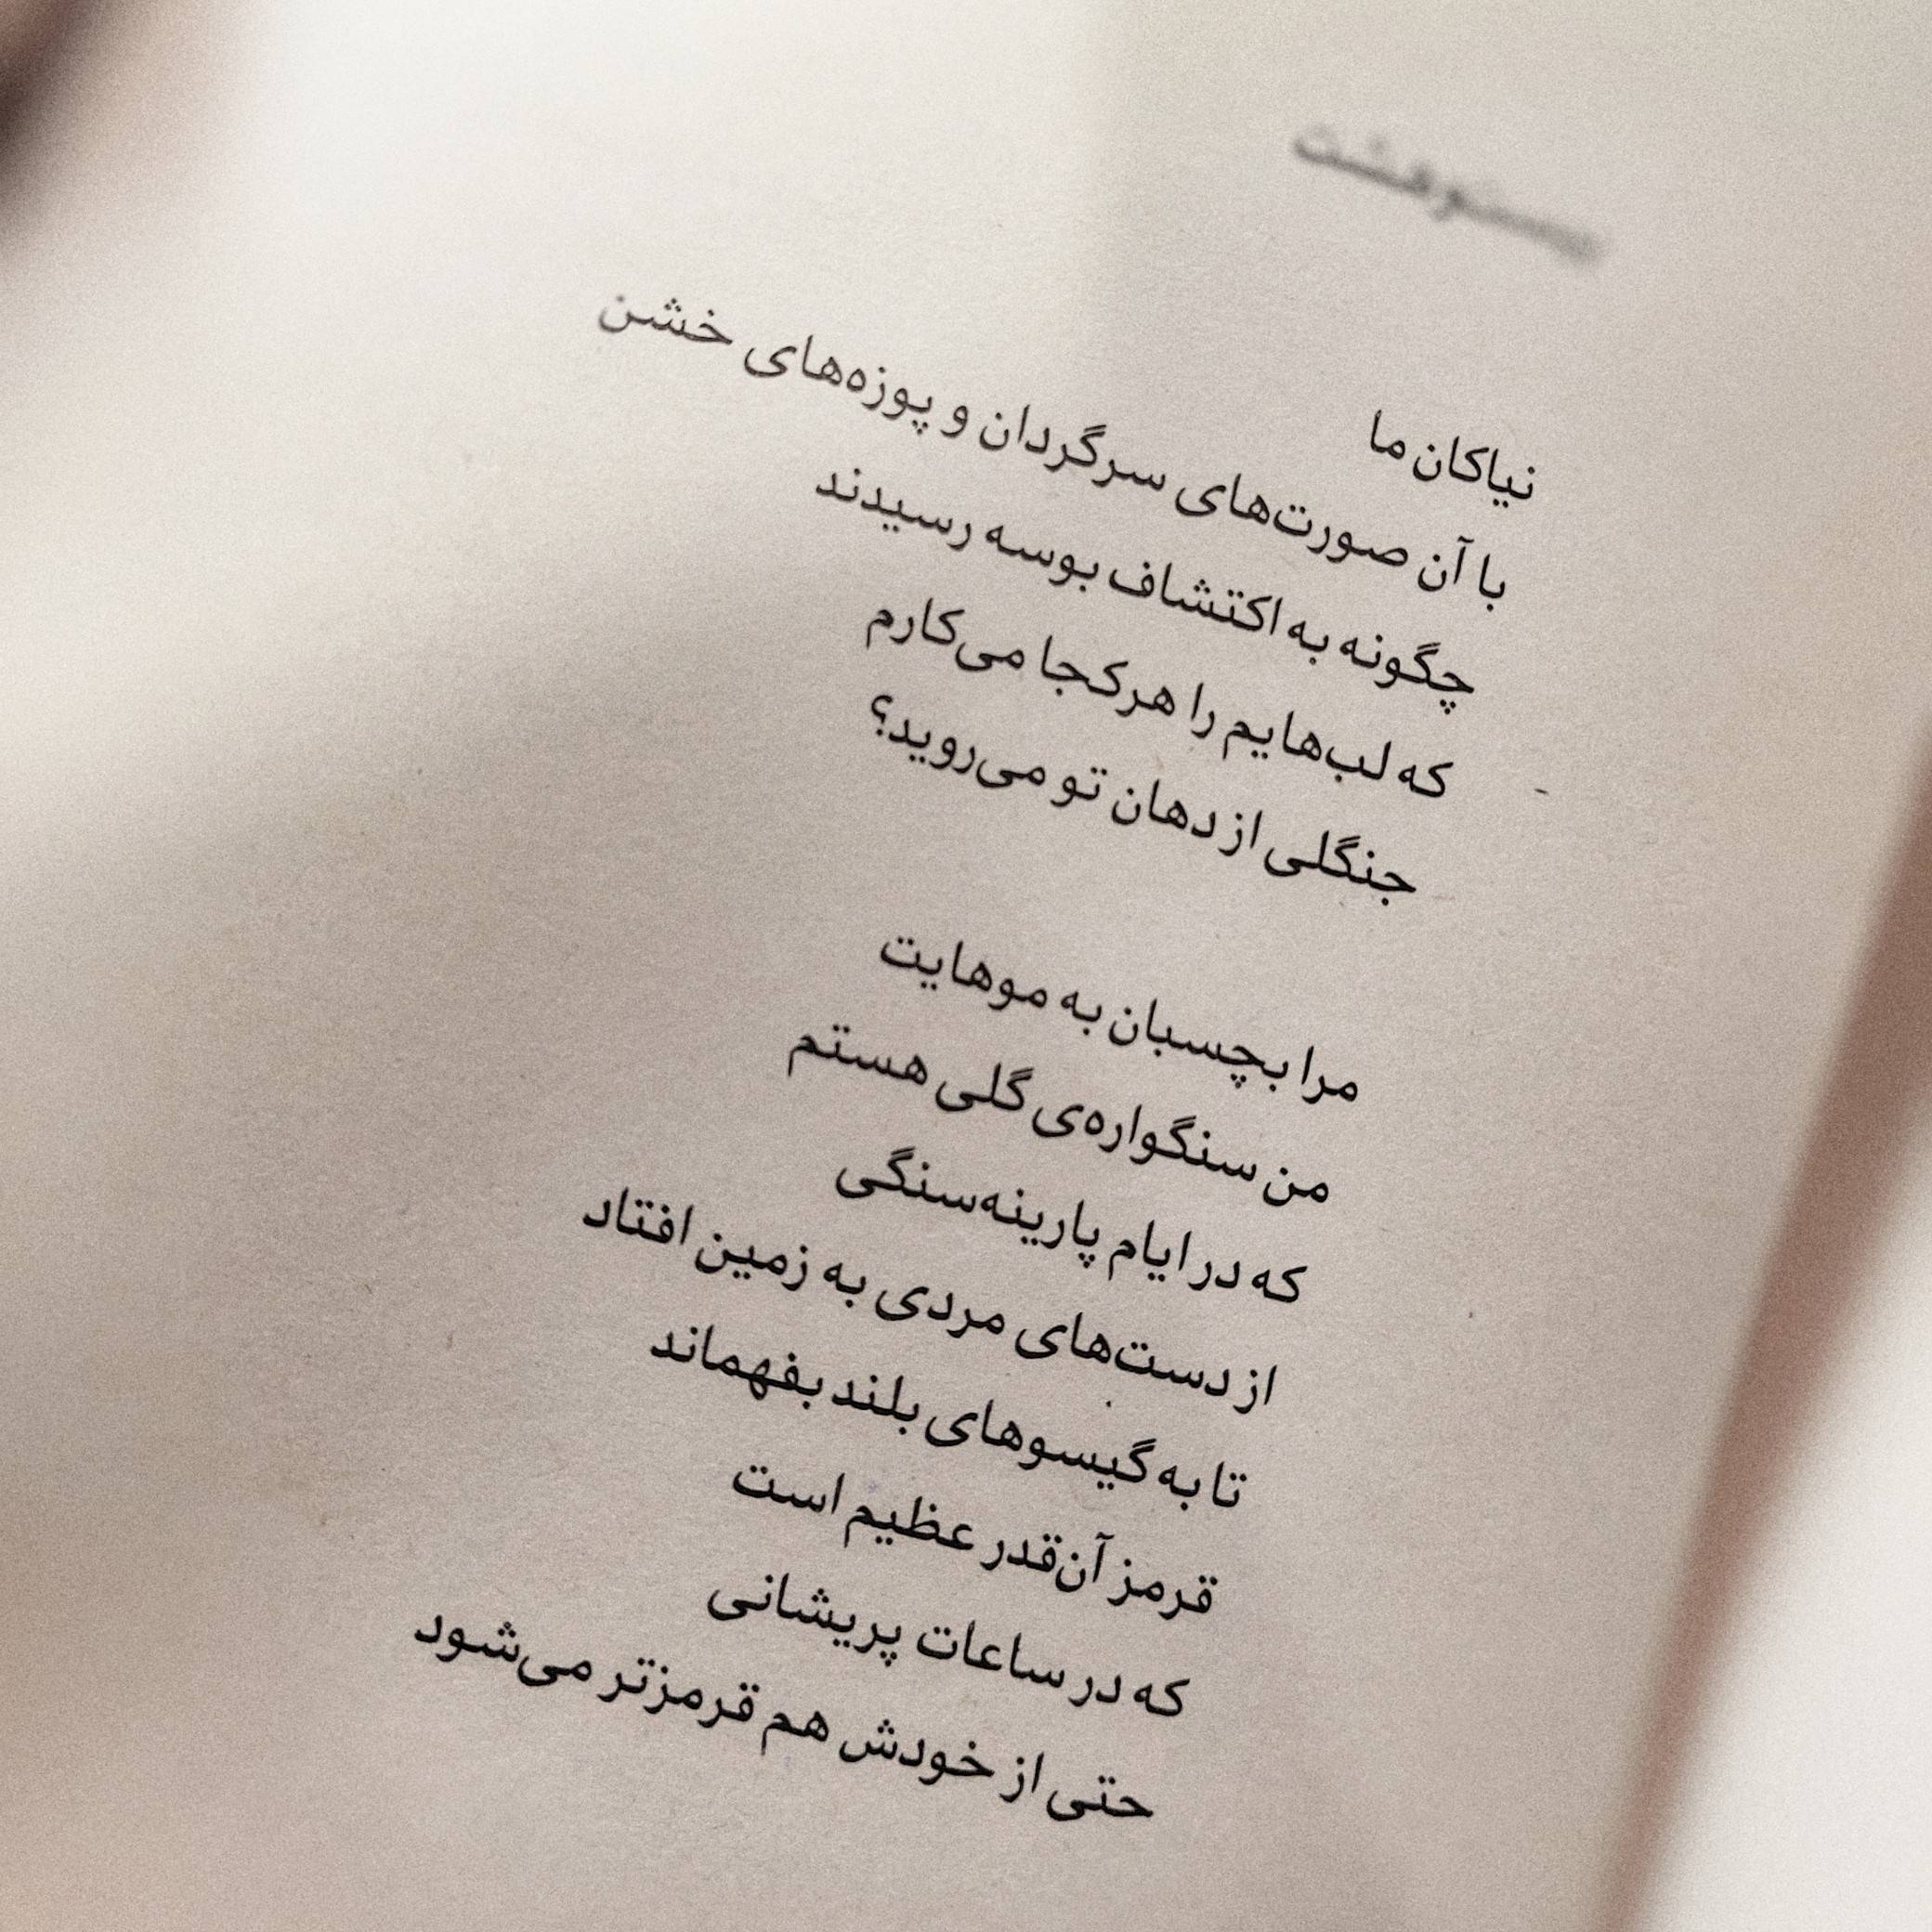 بیست‌و‌هشت
نیاکان ما
با آن صورت‌های سرگردان و پوزه‌های خشن
چگونه به اکتشاف بوسه رسیدند
که لب‌هایم را هرکجا می‌کارم
جنگلی از دهان تو می‌روید؟
مرا بچسبان به موهایت
من سنگواره‌ی گلی هستم
که در ایام پارینه‌سنگی
از دست‌های مردی به زمین افتاد
تا به گیسوهای بلند بفهماند
قرمز آن‌قدر عظیم است
که در ساعات پریشانی
حتی از خودش هم قرمزتر می‌شود